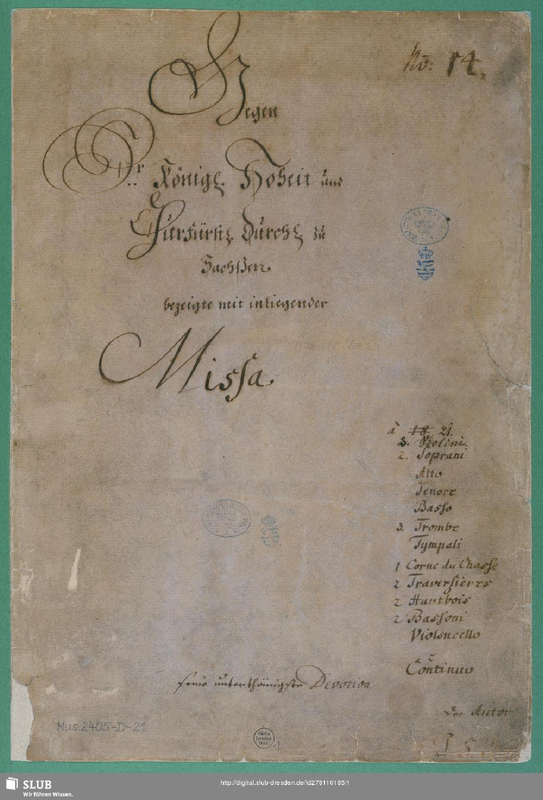 No: 14.
Gegen
Sr. Königl. Hoheit und
Churfürstl. Durchl. zu
Sachßen
bezeigte mit inliegender
Missa
à 18 21.
3. Violini.
2. Soprani
Alto
Tenore
Basso
3 Trombe
Tympali
1 Corne du Chasse
2 Traversieres
2 Hautbois
2 Bassoni
Violoncello
e
Continuo
seine unterthänigste Devotion
der Autor
J. S.
Mus. 2405-D-21
1
SLUB
Wir führen Wissen.
http://digital.slub-dresden.de/id278110185/1